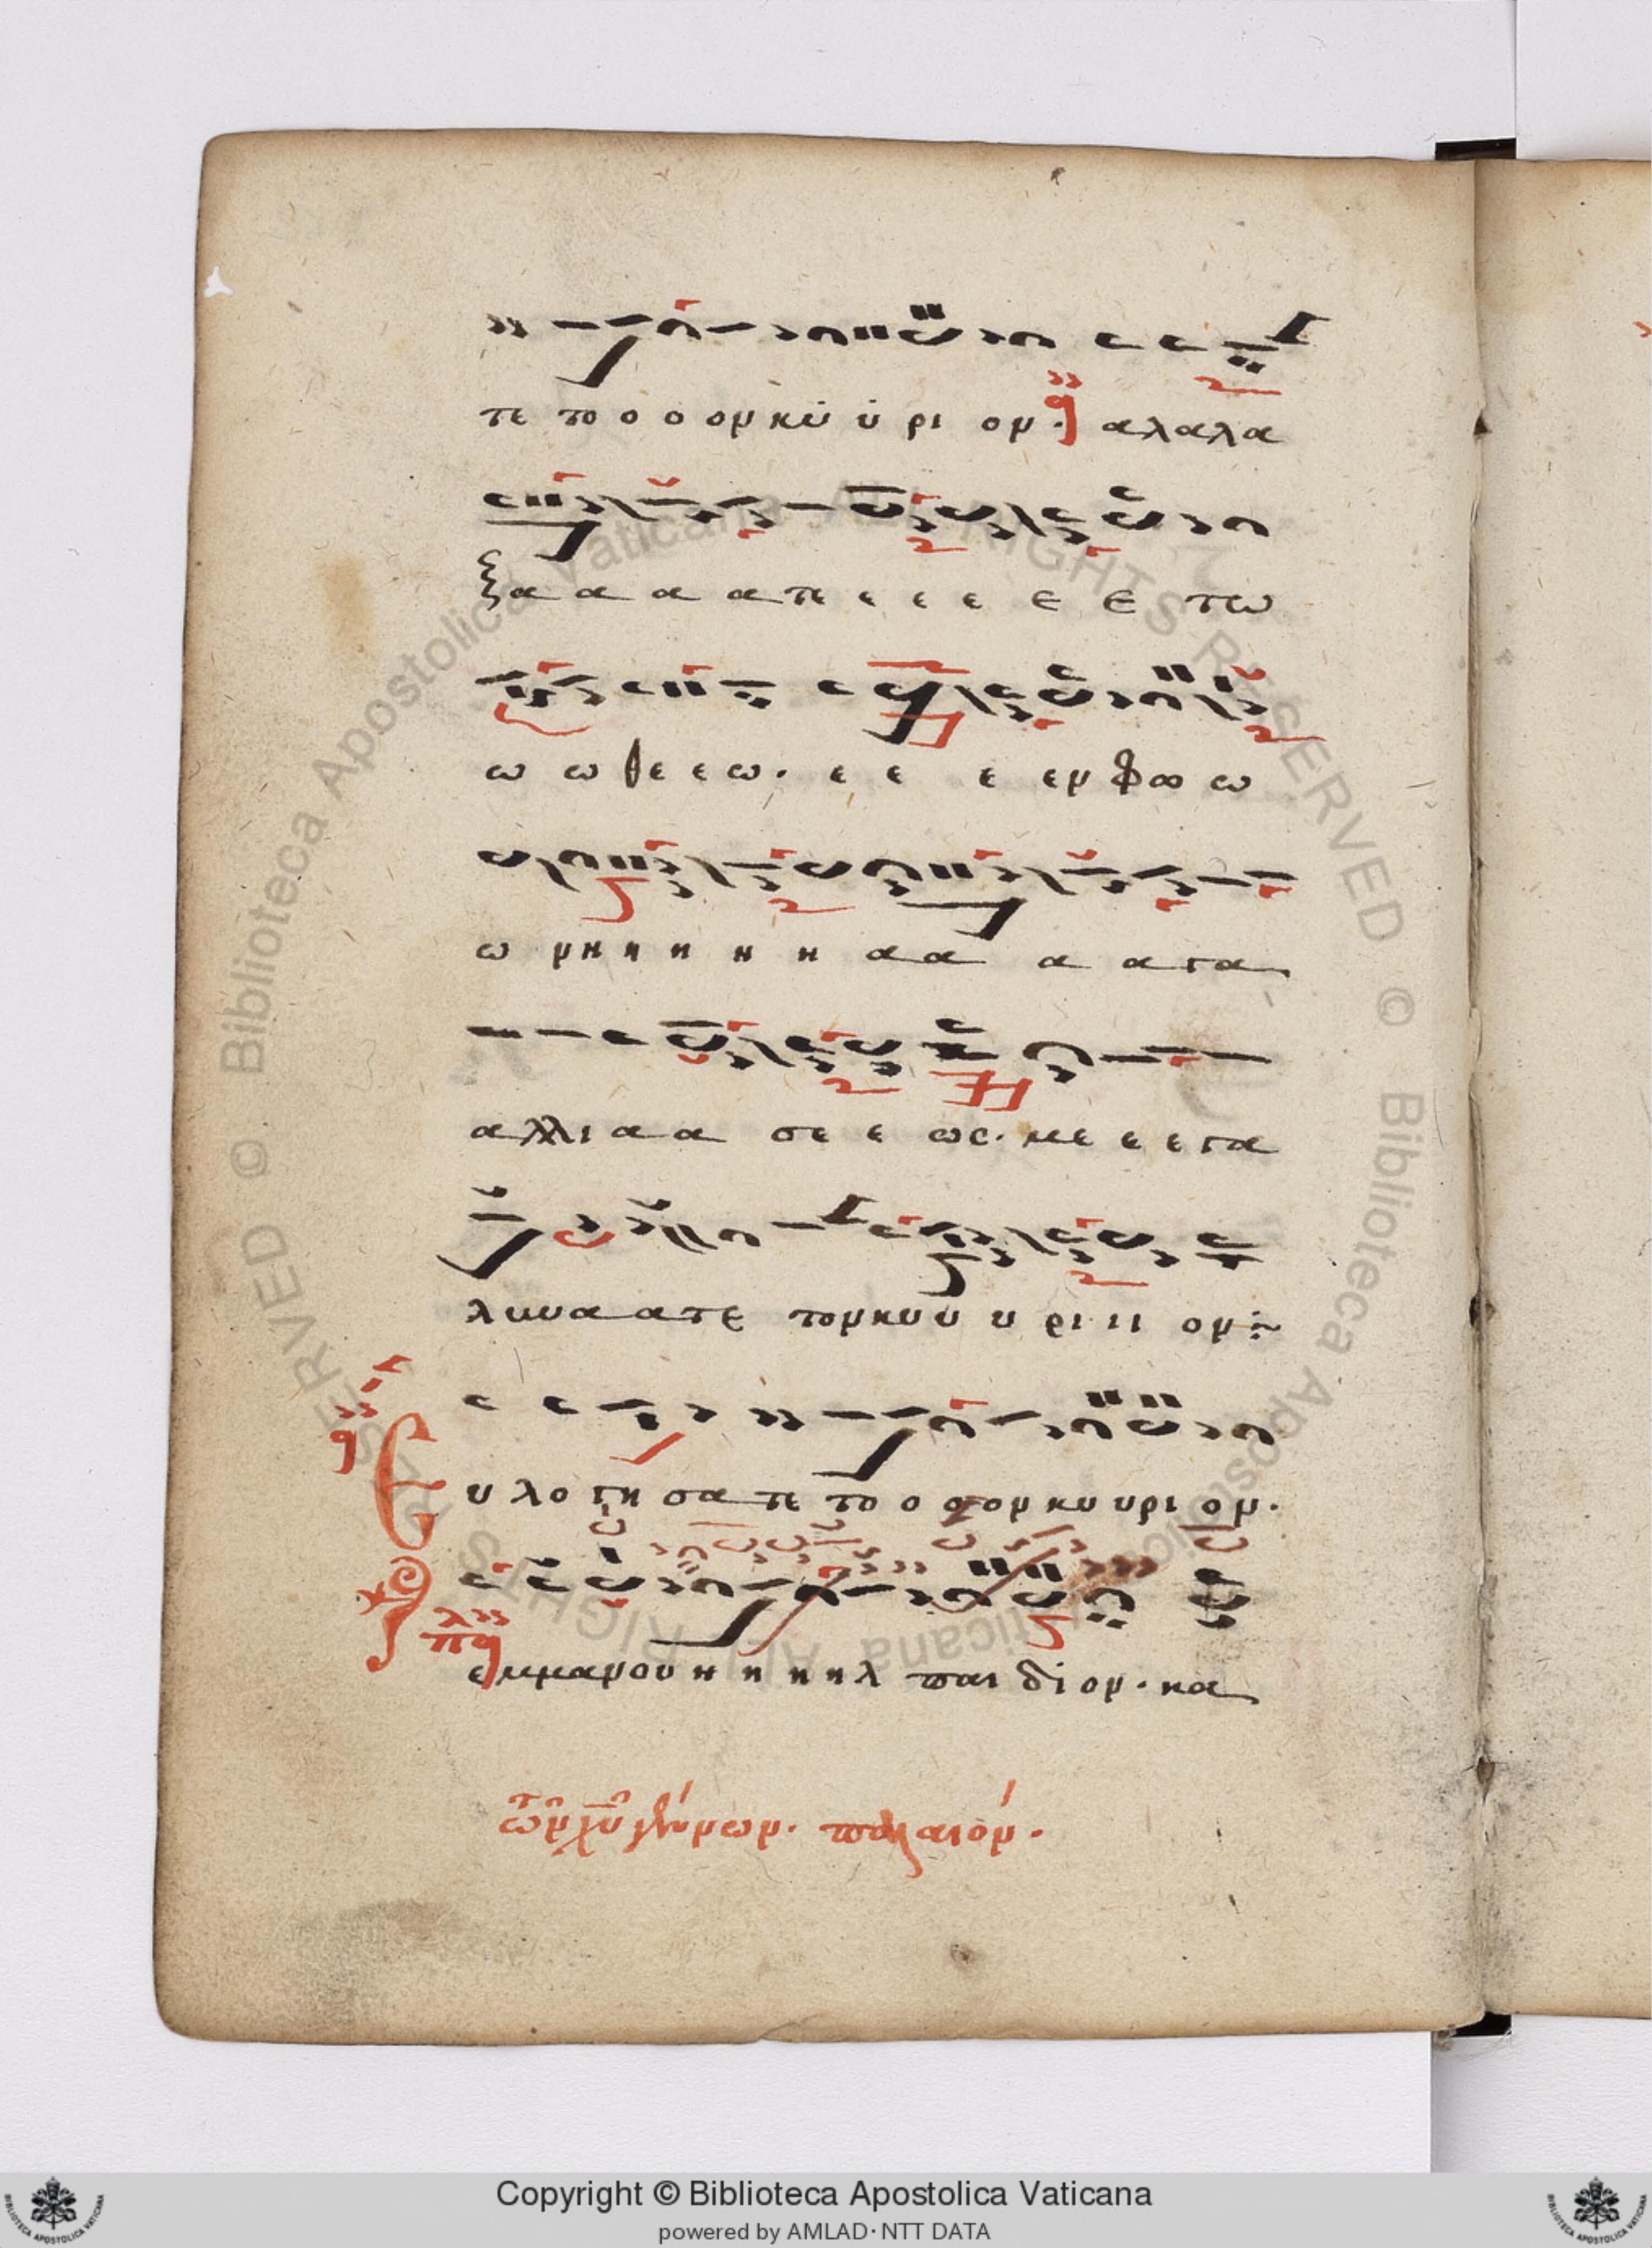 τε το ο ο ον κύ ύ ρι ον. αλαλα
ξα α α α πε ε ε ε ε ε τω
ω ω θε ε ω. ε ε ε εν φω ω
ω νη η η η η α α α α γα
αλλι α α σε ε ως. με ε ε γα
λυνα α τε τον κυ υ υ ρι ι ι ον
Ευ λο γη σα τε το ο ο ον κυ υρι ον.
εμμανου η η η ηλ παι δι ον. κα
παλαιόν.
Copyright © Biblioteca Apostolica Vaticana
powered by AMLAD·NTT DATA